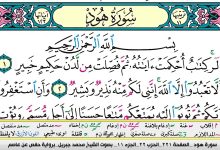 سُورَةُ هُودٍ
بِسْمِ اللَّهِ الرَّحْمَٰنِ الرَّحِيمِ
الٓر كِتَابٌ أُحْكِمَتْ آيَاتُهُ ثُمَّ فُصِّلَتْ مِن لَّدُنْ حَكِيمٍ خَبِيرٍ ١
أَلَّا تَعْبُدُوا إِلَّا اللَّهَ إِنَّنِي لَكُم مِّنْهُ نَذِيرٌ وَبَشِيرٌ ٢ وَأَنِ اسْتَغْفِرُوا
رَبَّكُمْ ثُمَّ تُوبُوا إِلَيْهِ يُمَتِّعْكُم مَّتَاعًا حَسَنًا إِلَىٰ أَجَلٍ مُّسَمًّى وَيُؤْتِ
سورة هود، الصفحة ٢٢١، الجزء ١١، بصوت الشيخ محمد جبريل، برواية حفص عن عاصم